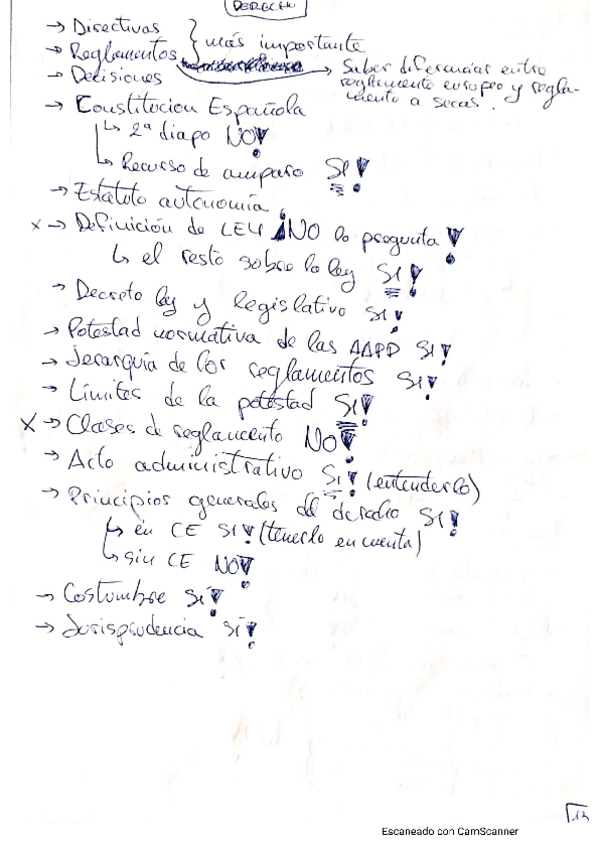 DERECHO
→ Directivas
→ Reglamentos } más importante
→ Decisiones → Saber diferenciar entre
reglamento europeo y regla-
mento a secas.
→ Constitucion Española
↳ 2ª diapo NO!
↳ Recurso de amparo SI!
→ Estatuto autonomía
x → Definición de LEY ¡NO lo pregunta!
↳ el resto sobre la ley SI!
→ Decreto ley y legislativo SI!
→ Potestad normativa de las AAPP SI!
→ Jerarquía de los reglamentos SI!
→ Límites de la potestad SI!
X → Clases de reglamento NO!
→ Acto administrativo SI! (entenderlo)
→ Principios generales del derecho SI!
↳ en CE SI! (tenerlo en cuenta)
↳ sin CE NO!
→ Costumbre SI!
→ Jurisprudencia SI!
Escaneado con CamScanner